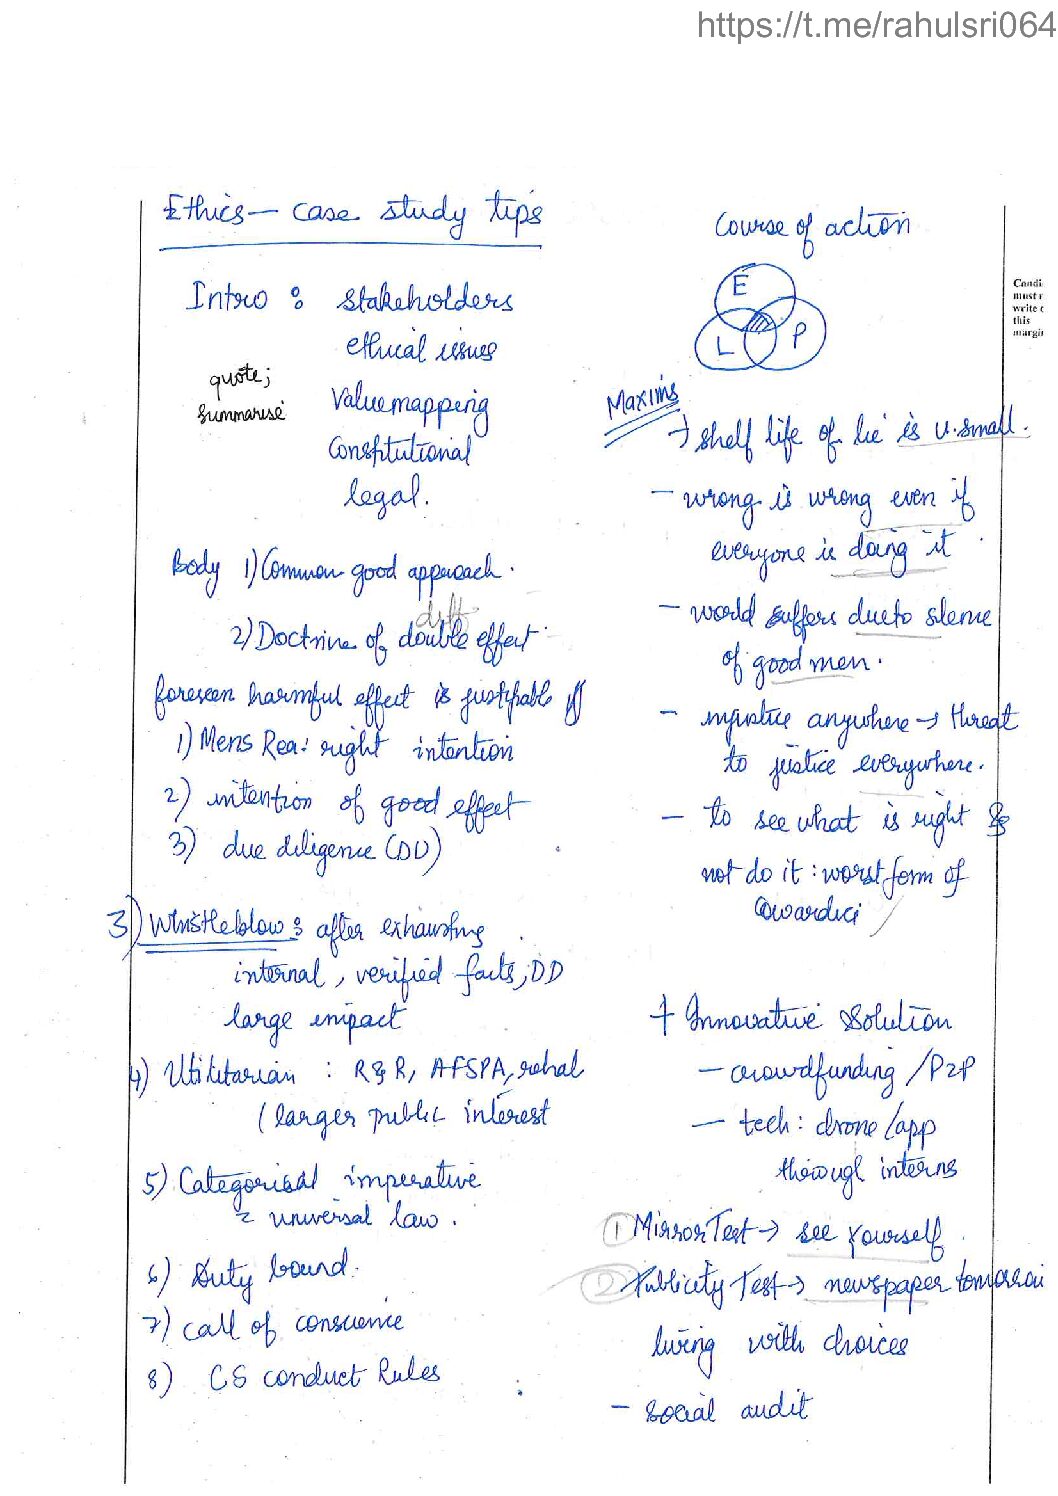 https://t.me/rahulsri064
Ethics - case study tips
Intro : stakeholders
ethical issues
quote;
summarise
Valuemapping
Constitutional
legal.
Body 1) Common good approach.
2) Doctrine of double effect
foreseen harmful effect is justifiable if
1) Mens Rea: right intention
2) intention of good effect
3) due diligence (DD)
3) Whistleblow : after exhausting
internal, verified facts, DD
large impact
4) Utilitarian : R&R, AFSPA, rehal
(larger public interest
5) Categorical imperative
= universal law.
6) Duty bound.
7) call of conscience
8) CS conduct Rules
Course of action
E
L P
Maxims
→ shelf life of lie is v.small.
- wrong is wrong even if
everyone is doing it
- world suffers due to silence
of good men.
- injustice anywhere → threat
to justice everywhere.
- to see what is right &
not do it : worst form of
Cowardice
+ Innovative solution
- crowdfunding / P2P
- tech: drone / app
through interns
① Mirror Test → see yourself
② Publicity Test → newspaper tomorrow
living with choices
- social audit
Candi
must r
write c
this
margi